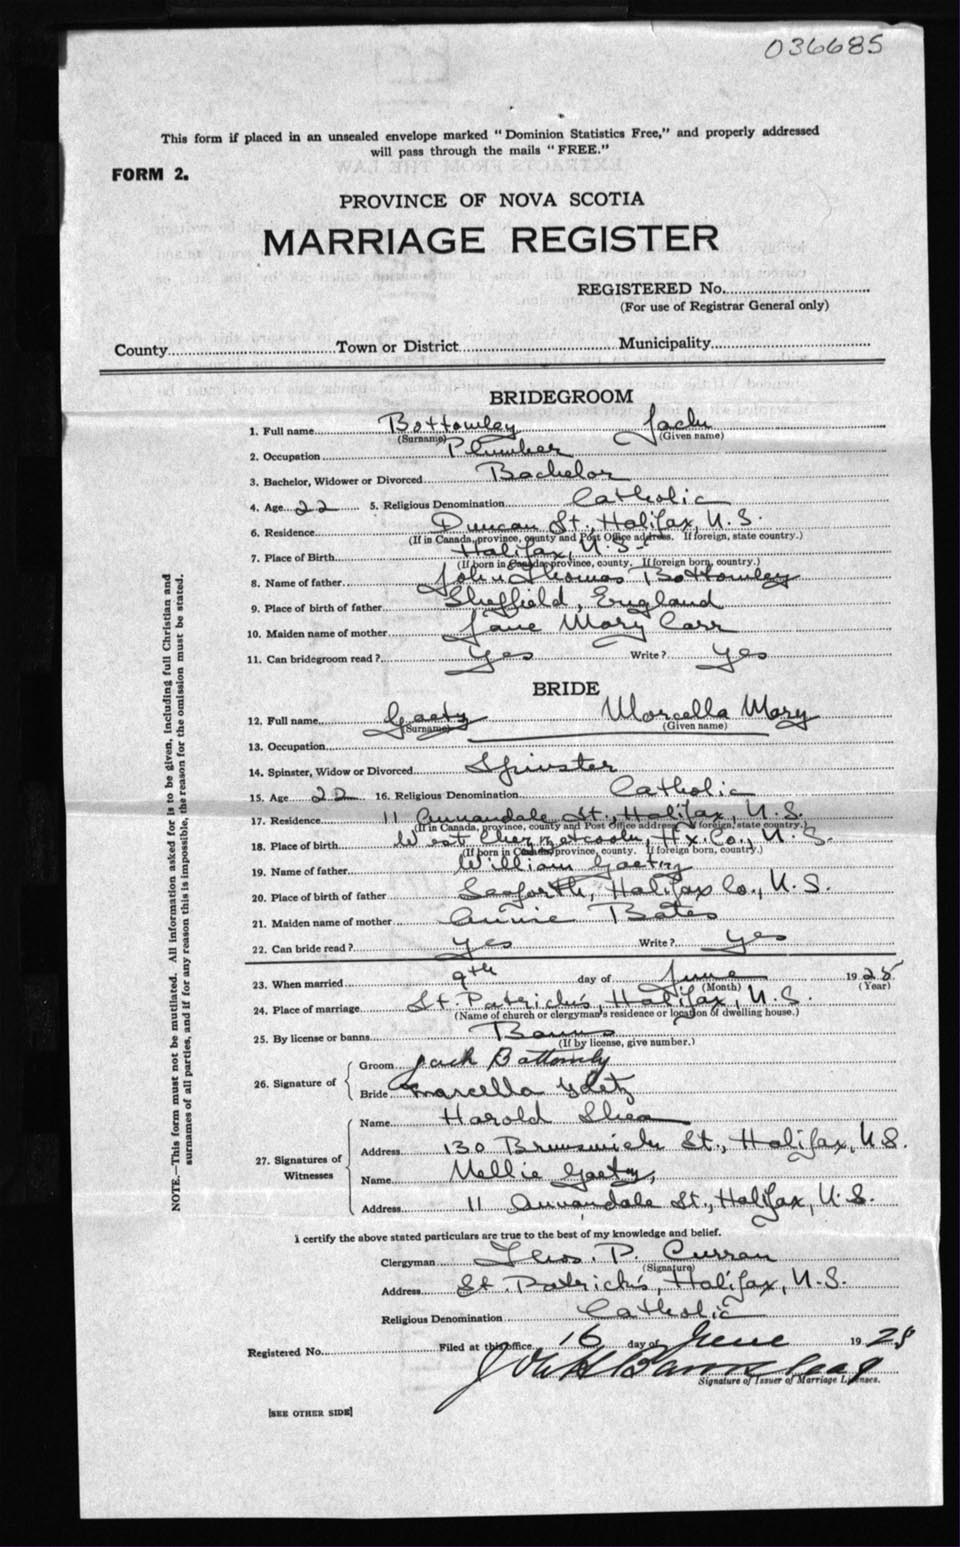 036685
This form if placed in an unsealed envelope marked "Dominion Statistics Free," and properly addressed
will pass through the mails "FREE."
FORM 2.
PROVINCE OF NOVA SCOTIA
MARRIAGE REGISTER
REGISTERED No.
(For use of Registrar General only)
County Town or District Municipality
BRIDEGROOM
1. Full name Bottomley Jack
(Surname) (Given name)
2. Occupation Plumber
3. Bachelor, Widower or Divorced Bachelor
4. Age 22 5. Religious Denomination Catholic
6. Residence Duncan St., Halifax, N.S.
(If in Canada, province, county and Post Office address. If foreign, state country.)
7. Place of Birth Halifax, N.S.
(If born in Canada, province, county. If foreign born, country.)
8. Name of father John Thomas Bottomley
9. Place of birth of father Sheffield, England
10. Maiden name of mother Jane Mary Carr
11. Can bridegroom read? Yes Write? Yes
BRIDE
12. Full name Gaetz Marcella Mary
(Surname) (Given name)
13. Occupation
14. Spinster, Widow or Divorced Spinster
15. Age 22 16. Religious Denomination Catholic
17. Residence 11 Annandale St., Halifax, N.S.
(If in Canada, province, county and Post Office address. If foreign, state country.)
18. Place of birth West Chezzetcook, Hx. Co., N.S.
(If born in Canada, province, county. If foreign born, country.)
19. Name of father William Gaetz
20. Place of birth of father Seaforth, Halifax Co., N.S.
21. Maiden name of mother Annie Bates
22. Can bride read? Yes Write? Yes
23. When married 9th day of June 1928
(Month) (Year)
24. Place of marriage St. Patrick's, Halifax, N.S.
(Name of church or clergyman's residence or location of dwelling house.)
25. By license or banns Banns
(If by license, give number.)
26. Signature of Groom Jack Bottomly
Bride Marcella Gaetz
27. Signatures of Witnesses Name Harold Shea
Address 130 Brunswick St., Halifax, N.S.
Name Nellie Gaetz,
Address 11 Annandale St., Halifax, N.S.
I certify the above stated particulars are true to the best of my knowledge and belief.
Clergyman Thos. P. Curran
(Signature)
Address St. Patrick's, Halifax, N.S.
Religious Denomination Catholic
Registered No. Filed at this office 16 day of June 1928
Signature of Issuer of Marriage Licenses.
[SEE OTHER SIDE]
NOTE.—This form must not be mutilated. All information asked for is to be given, including full Christian and
surnames of all parties, and if for any reason this is impossible, the reason for the omission must be stated.